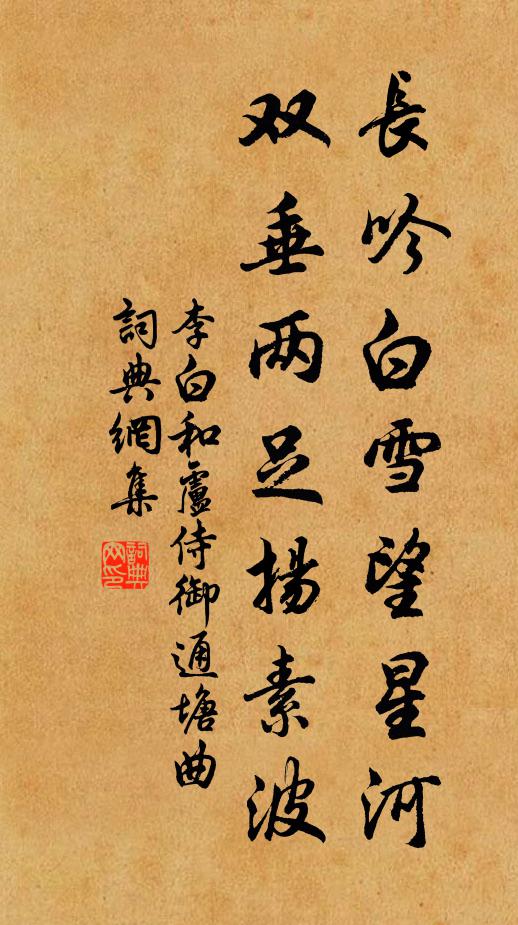 長吟白雪望星河
双垂两足揚素波
李白和盧侍御通塘曲
詞典網集
詞典网印